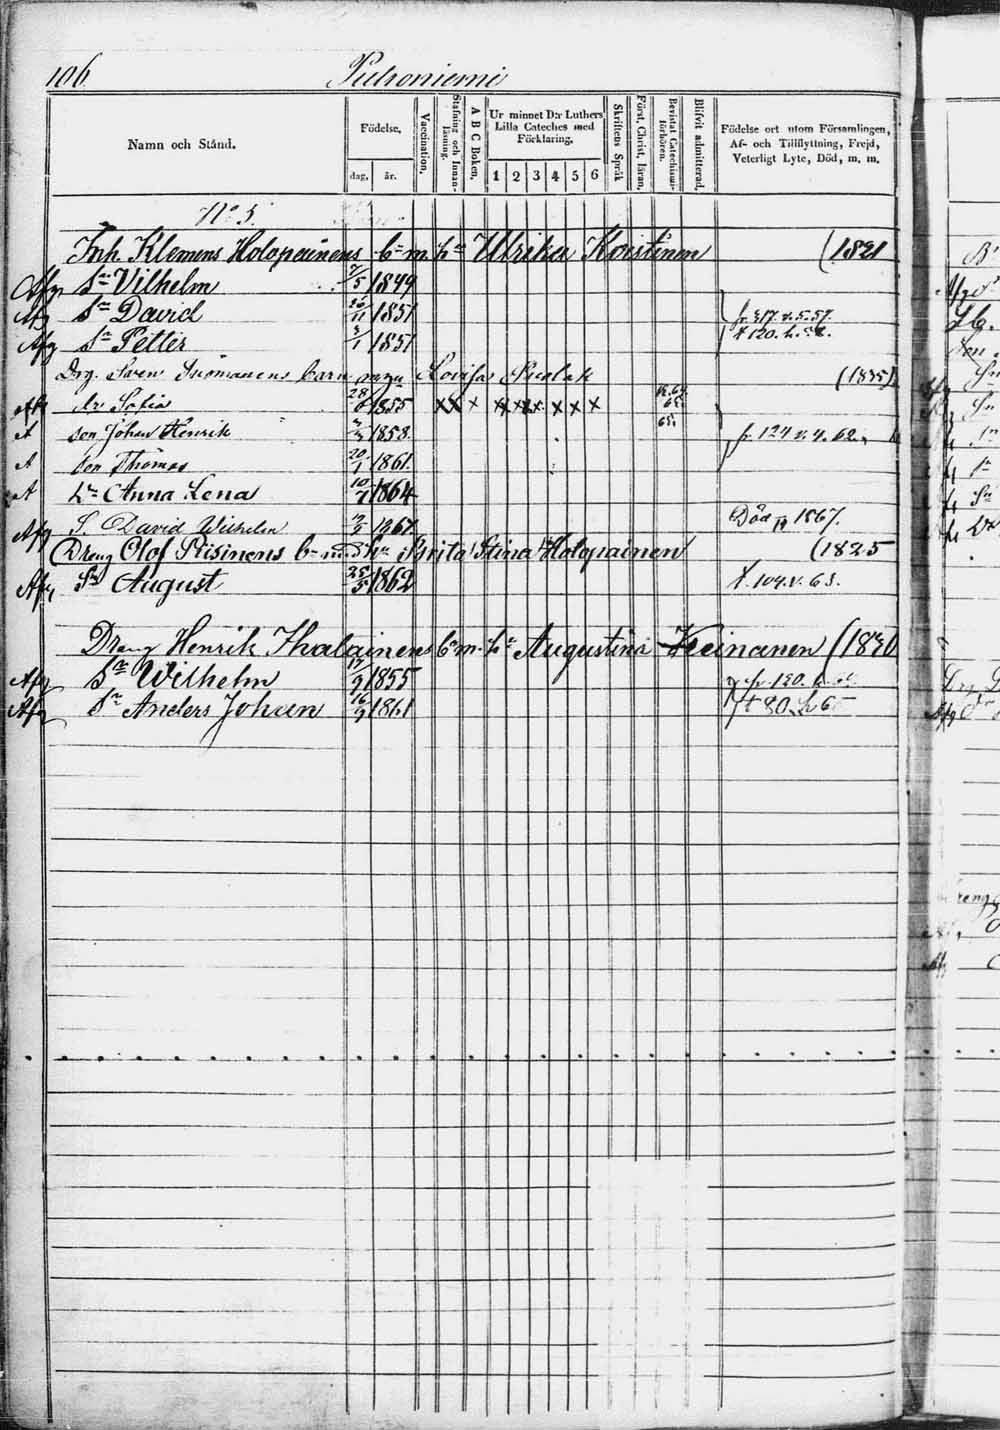 106. Putroniemi
Namn och Stånd.
Födelse,
dag, år.
Vaccination,
Stafning och Innanläsning.
A B C Boken,
Ur minnet D:r Luthers Lilla Cateches med Förklaring,
1 2 3 4 5 6
Skriftens Språk
Först, Christ, läran,
Bevistat Catechismiförhören.
Blifvit admitterad,
Födelse ort utom Församlingen, Af- och Tillflyttning, Frejd, Veterligt Lyte, Död, m. m.
N:o 5.
Inh. Klemens Holopainens b–n m. h–u Ulrika Koistinen (1821
Afg Sn Vilhelm 7/5 1849
Afg Sn David 26/11 1851 fr. 317. v. 5. 57.
Afg Sn Petter 3/1 1857 t 120. h.
Drg. Sven Suomanens barn m. Lovisa (1835)
Afg dr Sofia 28/6 1855 x x x x x x x x x
A son Johan Henrik 1858. fr. 124 v. 4. 62.
A son Thomas 20/1 1861.
A Dn Anna Lena 10/1 1864
Afg S. David Wilhelm 1867. Död 1867.
Dreng Olof Piisinens b–n m. h–u Brita Stina Holopainen (1825
Afg Sn August 25/5 1862 t. 104. v. 63.
Dreng Henrik Ihalainens b–n m. h–u Augustina Keinanen (1830
Afg Sn Wilhelm 17/9 1855 fr. 120. h.
Afg Sn Anders Johan 16/9 1861 t 80. h 65